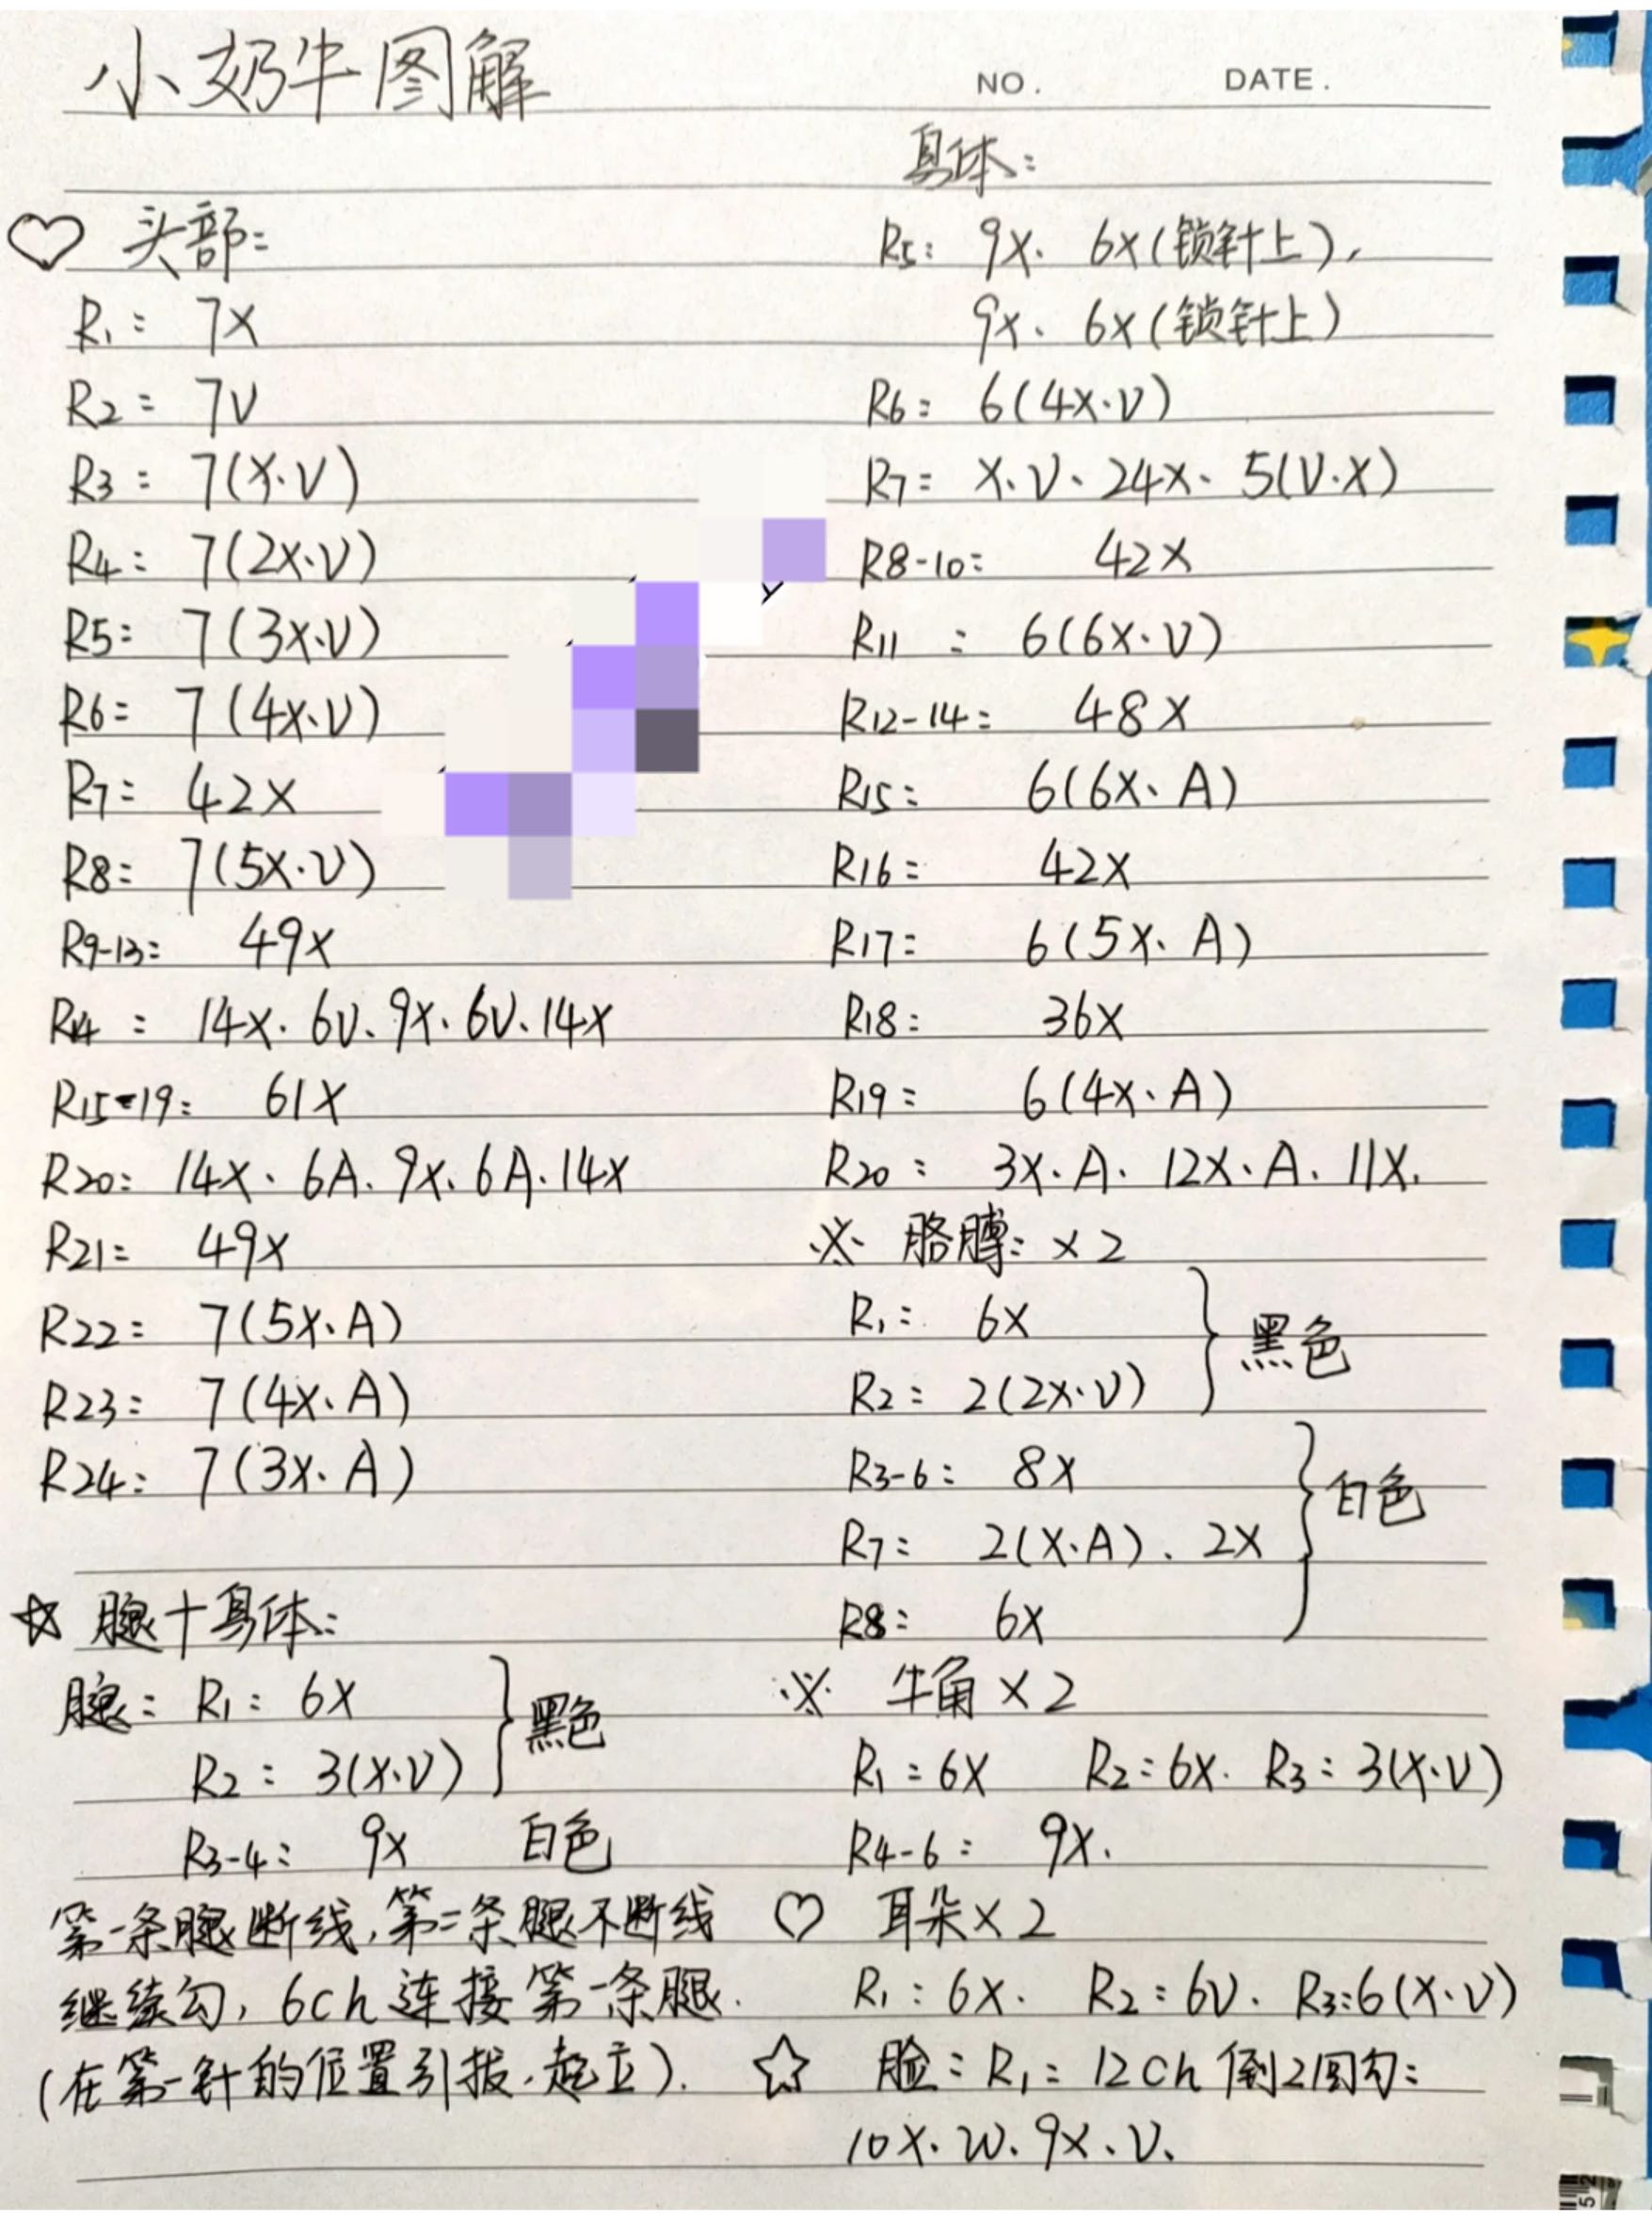 小奶牛图解
NO.
DATE.
♡ 头部:
R1: 7X
R2: 7V
R3: 7(X·V)
R4: 7(2X·V)
R5: 7(3X·V)
R6: 7(4X·V)
R7: 42X
R8: 7(5X·V)
R9-13: 49X
R14: 14X·6V、9X、6V、14X
R15-19: 61X
R20: 14X·6A、9X、6A·14X
R21: 49X
R22: 7(5X、A)
R23: 7(4X、A)
R24: 7(3X、A)
☆ 腿+身体:
腿: R1: 6X
R2: 3(X·V)
黑色
R3-4: 9X 白色
第一条腿断线,第二条腿不断线
继续勾,6ch连接第一条腿.
(在第一针的位置引拔·起立).
身体:
R5: 9X、6X(锁针上),
9X、6X(锁针上)
R6: 6(4X·V)
R7: X、V、24X、5(V·X)
R8-10: 42X
R11: 6(6X·V)
R12-14: 48X
R15: 6(6X、A)
R16: 42X
R17: 6(5X、A)
R18: 36X
R19: 6(4X、A)
R20: 3X·A·12X、A·11X.
※ 胳膊: ×2
R1: 6X
R2: 2(2X·V)
黑色
R3-6: 8X
R7: 2(X·A)、2X
R8: 6X
白色
※ 牛角×2
R1:6X R2:6X. R3:3(X、V)
R4-6: 9X.
♡ 耳朵×2
R1:6X. R2:6V. R3:6(X·V)
☆ 脸: R1: 12ch 倒2圈勾:
10X、W、9X、V、
52